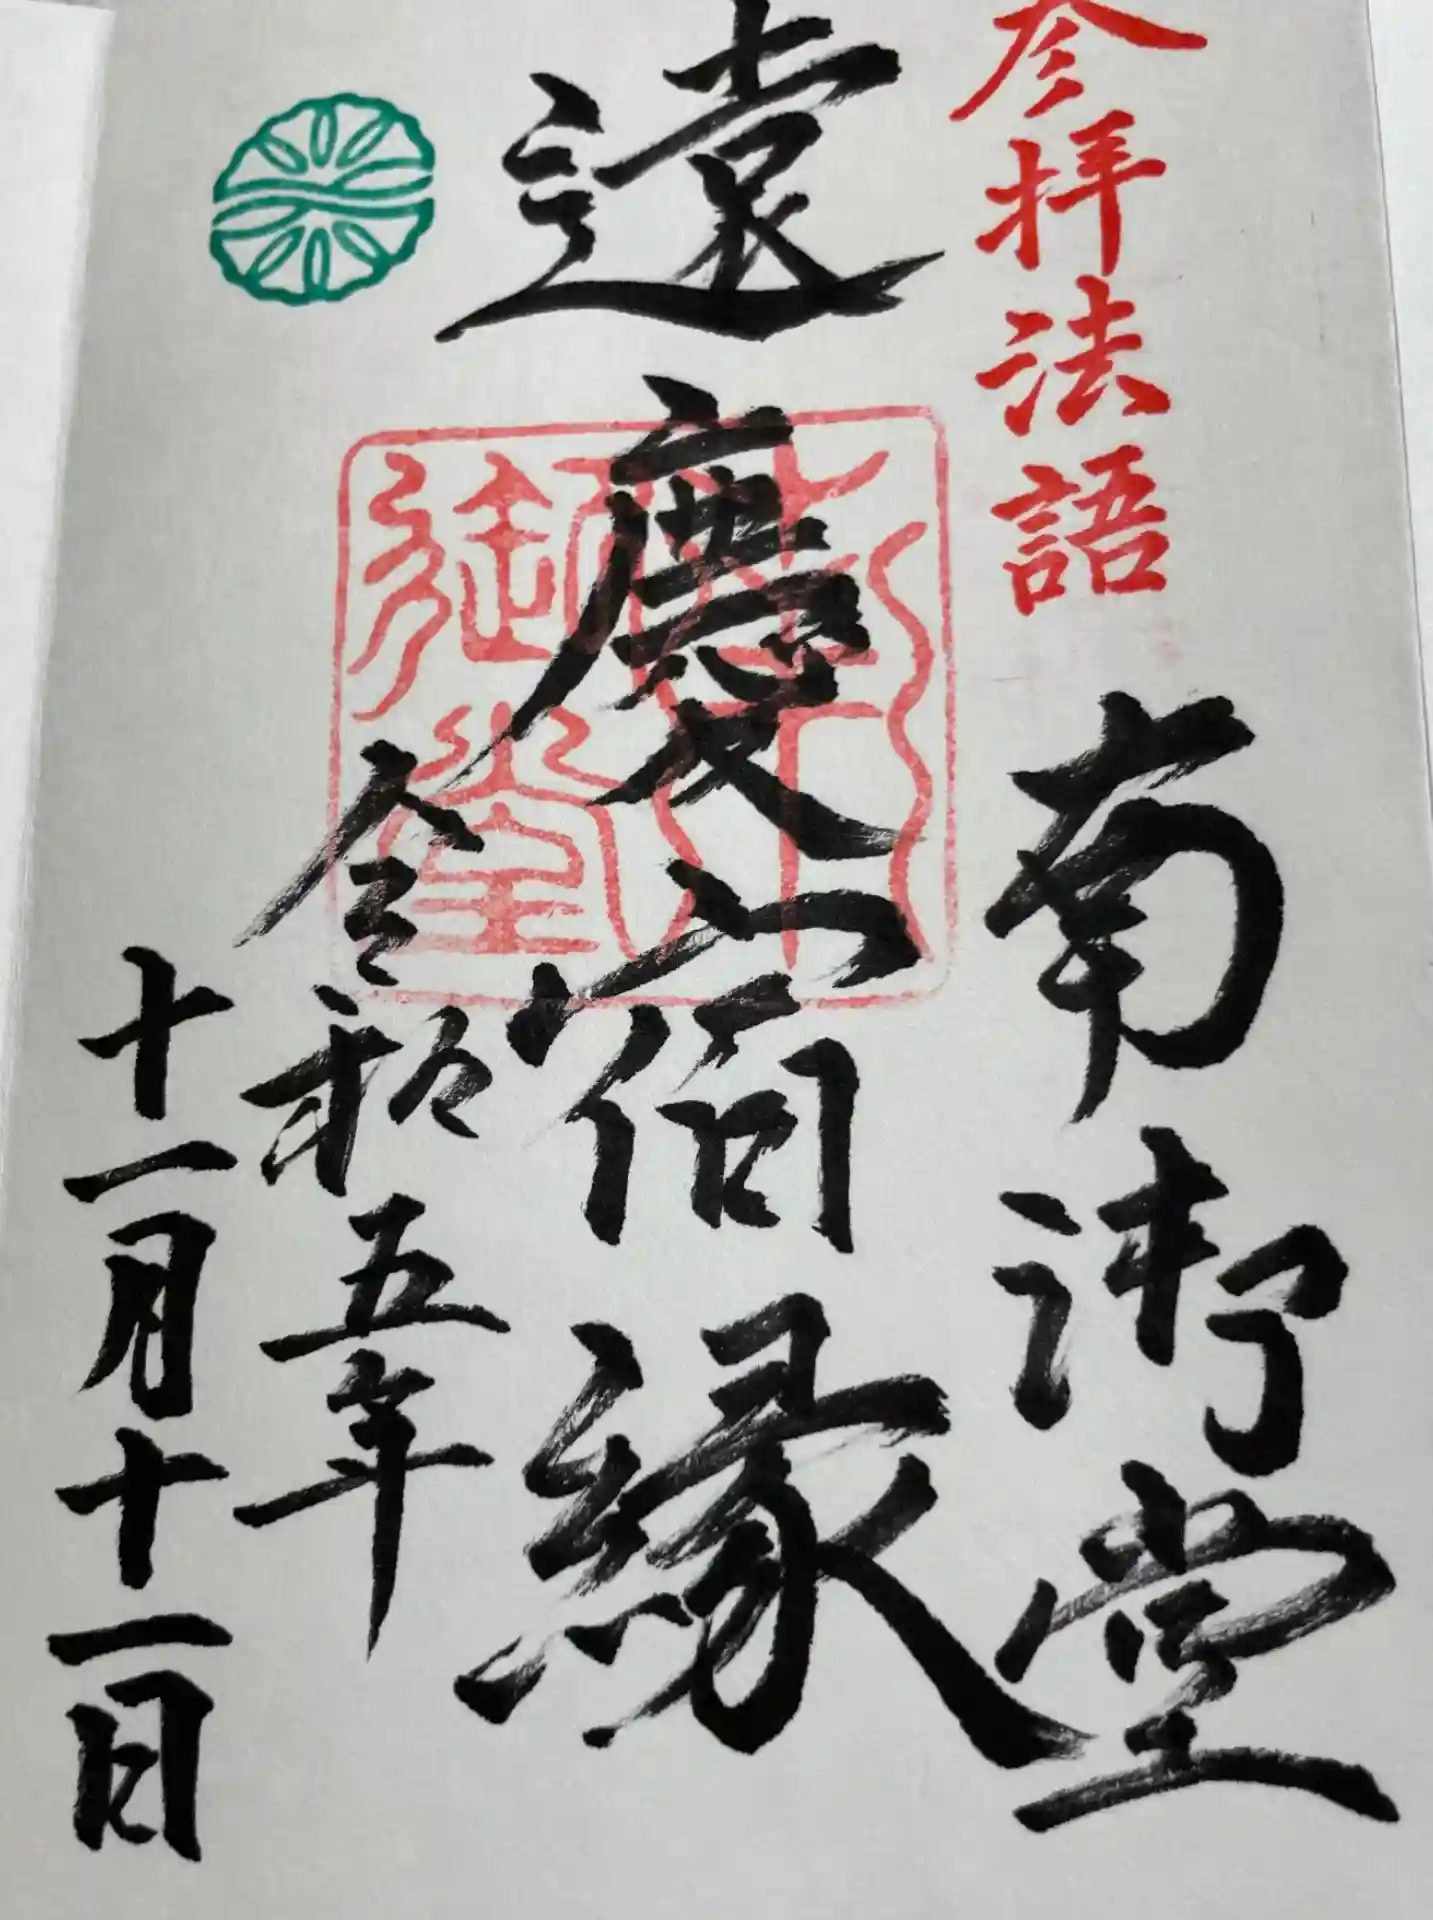 参拝法語
南御堂
遠慶宿縁
令和五年
十一月十一日
御堂